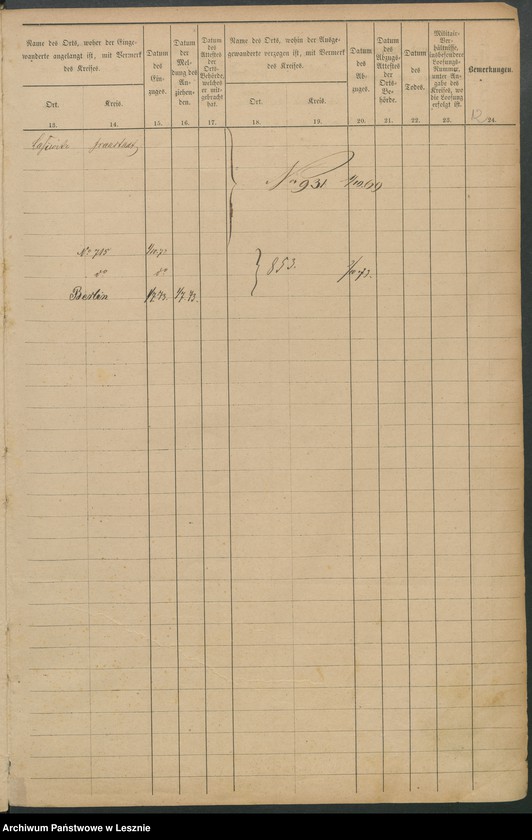 Name des Orts, woher der Einge-
wanderte angelangt ist, mit Vermerk
des Kreises.
Ort.
Kreis.
13.
14.
Datum
des
Ein-
zuges.
15.
Datum
der
Mel-
dung des
An-
ziehen-
den.
16.
Datum
des
Attestes
der
Orts-
Behörde,
welches
er mit-
gebracht
hat.
17.
Name des Orts, wohin der Ausge-
gewanderte verzogen ist, mit Vermerk
des Kreises.
Ort.
Kreis.
18.
19.
Datum
des
Ab-
zuges.
20.
Datum
des
Abzugs-
Attestes
der
Orts-
Be-
hörde.
21.
Datum
des
Todes.
22.
Militair-
Ver-
hältnisse,
insbesondere
Loosungs-
Nummer,
unter An-
gabe des
Kreises, wo
die Loosung
erfolgt ist.
23.
Bemerkungen.
12
24.
No 931
No 715
do do
853.
Berlin
Archiwum Państwowe w Lesznie